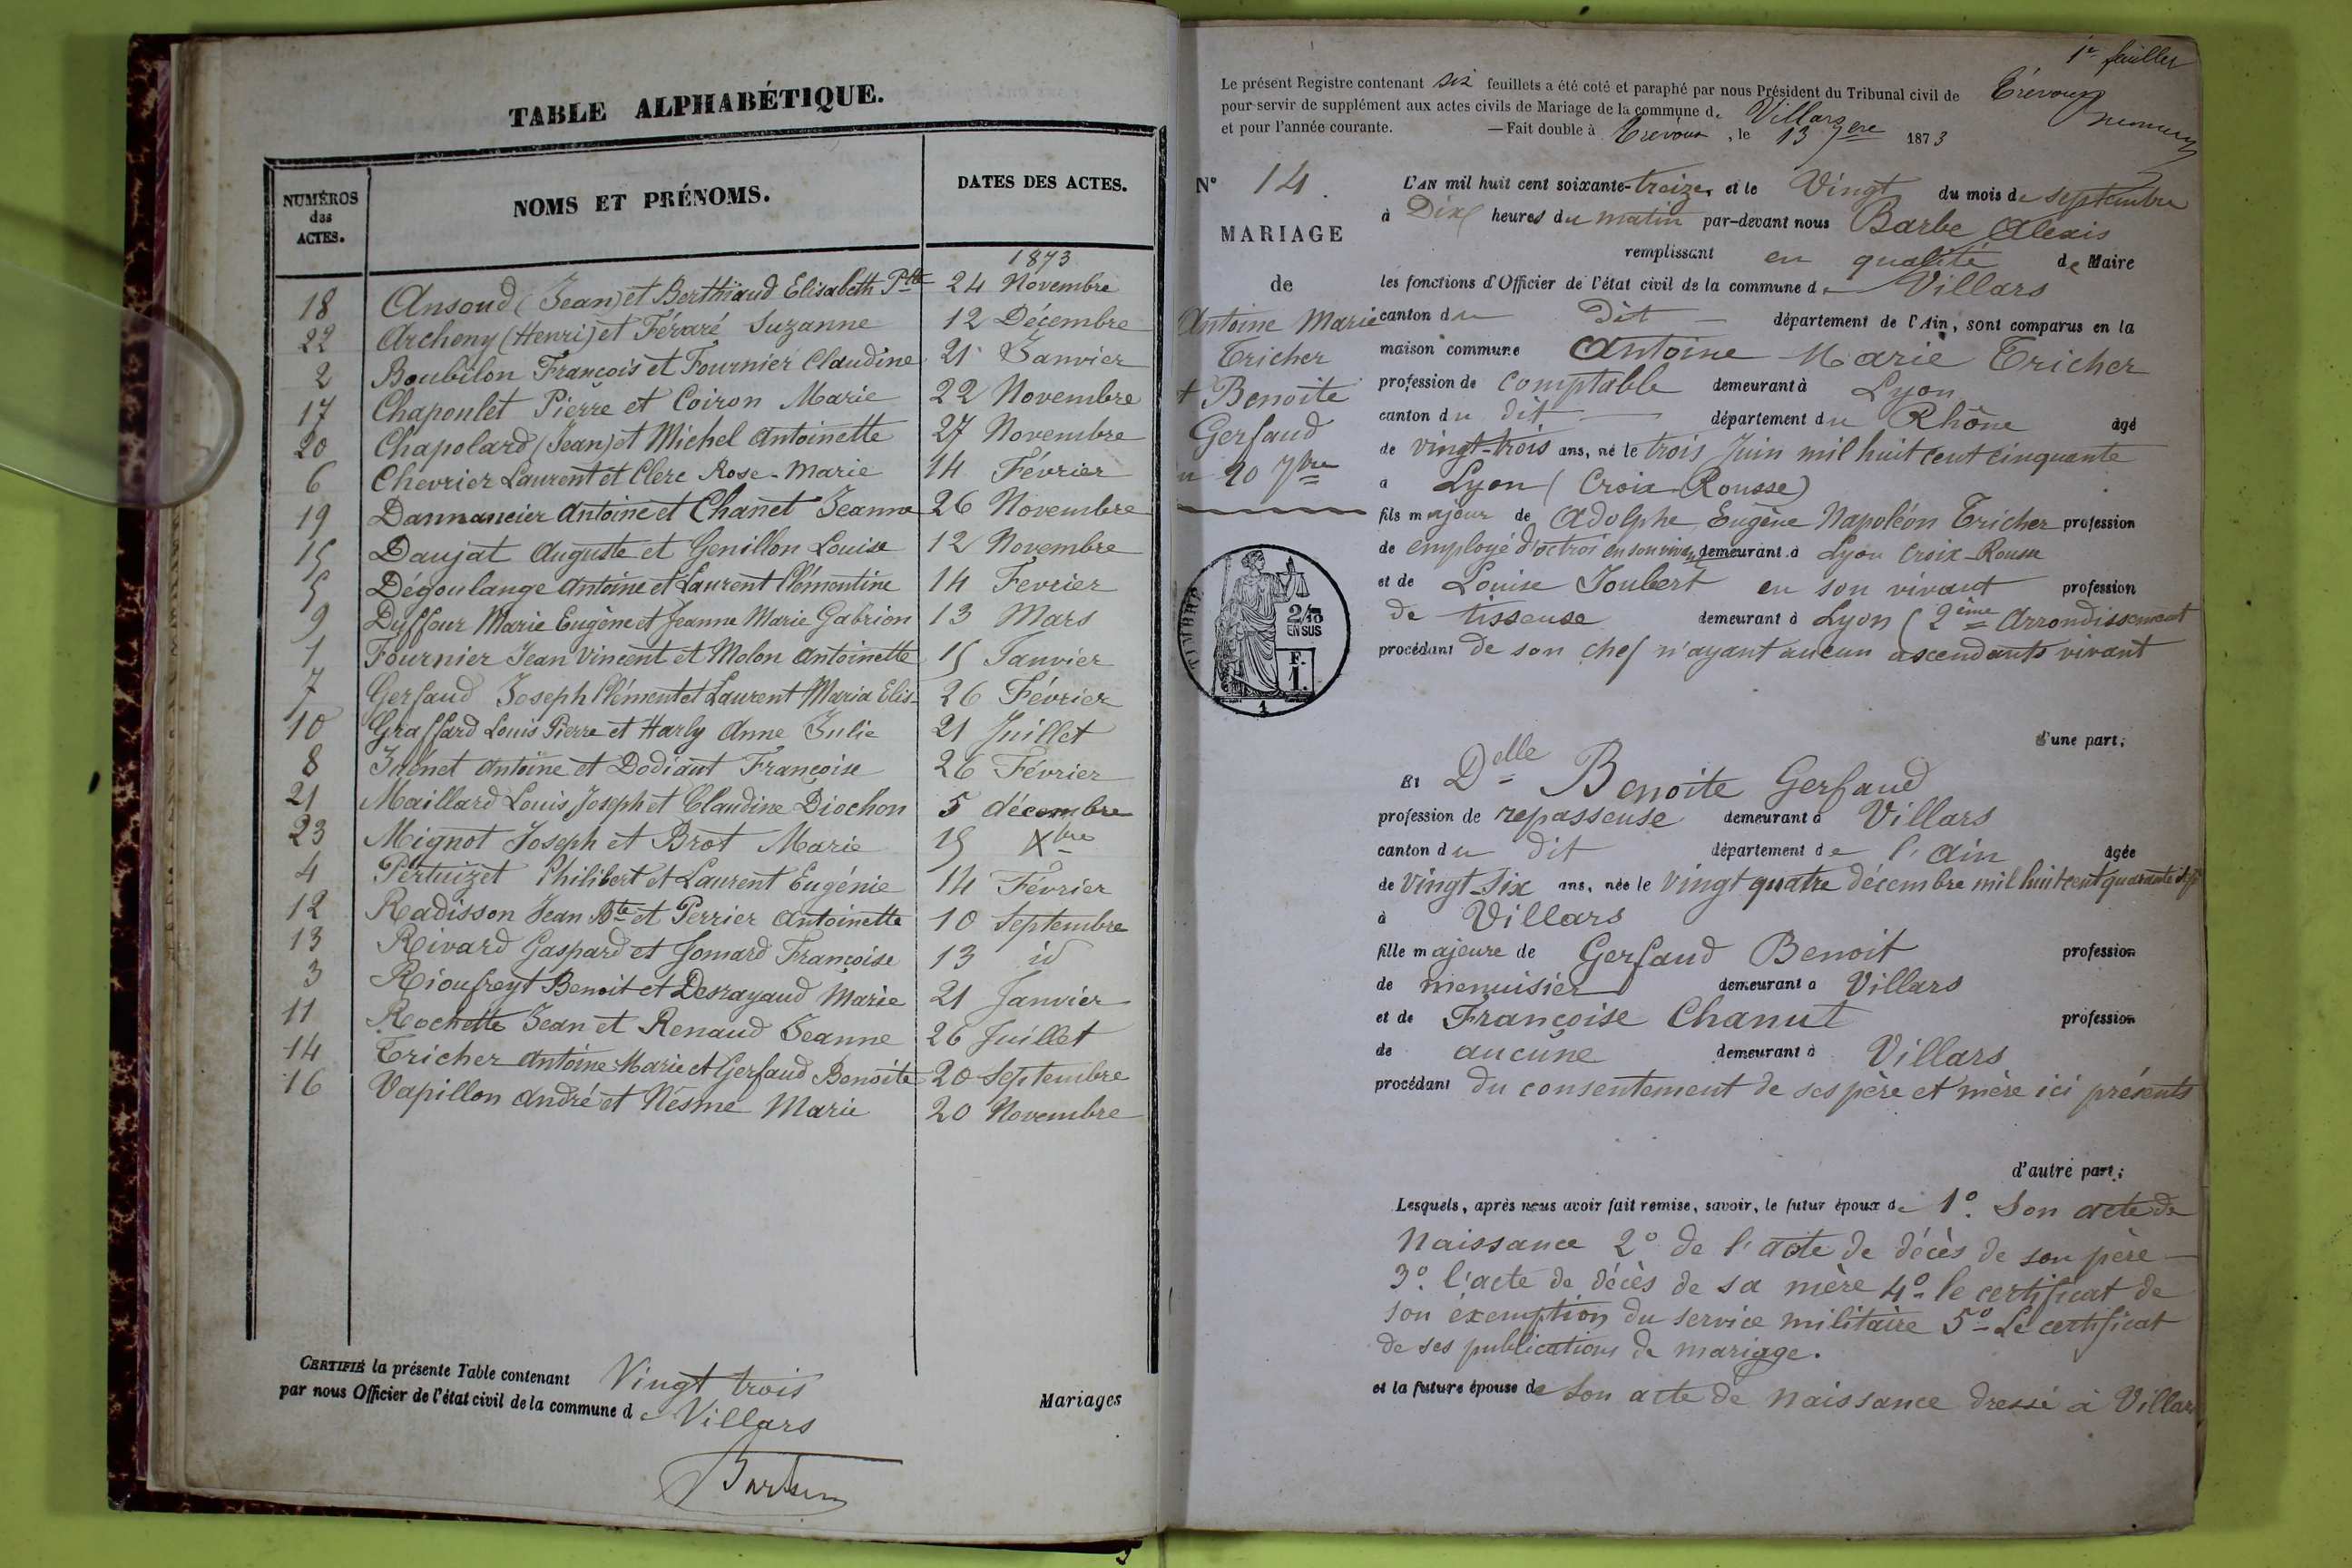 TABLE ALPHABÉTIQUE.
NUMÉROS des ACTES.
NOMS ET PRÉNOMS.
DATES DES ACTES.
1873
18 Ansoud (Jean) et Berthiaud Elisabeth Ptte 24 Novembre
22 Archeny (Henri) et Féraré Suzanne 12 Décembre
2 Boubilon François et Fournier Claudine 21 Janvier
17 Chapoulet Pierre et Coiron Marie 22 Novembre
20 Chapolard (Jean) et Michel Antoinette 27 Novembre
6 Chevrier Laurent et Clerc Rose-Marie 14 Février
19 Dannancier Antoine et Chanet Jeanne 26 Novembre
15 Daujat Auguste et Genillon Louise 12 Novembre
5 Dégoulange Antoine et Laurent Clémentine 14 Fevrier
9 Duffour Marie Eugène et Jeanne Marie Gabrion 13 Mars
1 Fournier Jean Vincent et Molon Antoinette 15 Janvier
7 Gerfaud Joseph Clément et Laurent Maria Elis- 26 Février
10 Graffard Louis Pierre et Harly Anne Julie 21 Juillet
8 Antoine et Dodiant Françoise 26 Février
21 Maillard Louis Joseph et Claudine Diochon 5 décembre
23 Mignot Joseph et Brot Marie 15 Xbre
4 Pertuizet Philibert et Laurent Eugénie 14 Février
12 Radisson Jean Bte et Perrier Antoinette 10 Septembre
13 Rivard Gaspard et Jomard Françoise 13 id
3 Rioufreyt Benoit et Desrayaud Marie 21 Janvier
11 Rochette Jean et Renaud Jeanne 26 Juillet
14 Tricher Antoine Marie et Gerfaud Benoite 20 Septembre
16 Vapillon André et Nesme Marie 20 Novembre
CERTIFIÉ la présente Table contenant Vingt trois Mariages
par nous Officier de l'état civil de la commune de Villars
1er feuillet
Le présent Registre contenant six feuillets a été coté et paraphé par nous Président du Tribunal civil de Trévoux
pour servir de supplément aux actes civils de Mariage de la commune de Villars
et pour l'année courante. — Fait double à Trévoux, le 13 7bre 1873
N° 14.
MARIAGE
de
Antoine Marie
Tricher
+ Benoite
Gerfaud
20 7bre
TIMBRE
2/10
EN SUS
F.
1.
1
L'AN mil huit cent soixante-treize, et le Vingt du mois de septembre
à Dix heures du matin par-devant nous Barbe Alexis
remplissant en qualité de Maire
les fonctions d'Officier de l'état civil de la commune de Villars
canton du Dit département de l'Ain, sont comparus en la
maison commune Antoine Marie Tricher
profession de comptable demeurant à Lyon
canton du dit département du Rhône âgé
de vingt-trois ans, né le trois Juin mil huit cent cinquante
à Lyon (Croix-Rousse)
fils majeur de Adolphe Eugène Napoléon Tricher profession
de employé d'octroi en son vivant demeurant à Lyon Croix-Rousse
et de Louise Joubert en son vivant profession
de tisseuse demeurant à Lyon (2ème Arrondissement
procédant de son chef n'ayant aucun ascendants vivant
d'une part;
Et Delle Benoite Gerfaud
profession de repasseuse demeurant à Villars
canton du dit département de l'Ain âgée
de Vingt Six ans, née le vingt quatre décembre mil huit cent quarante sept
à Villars
fille majeure de Gerfaud Benoit profession
de menuisier demeurant à Villars
et de Françoise Chanut profession
de aucune demeurant à Villars
procédant du consentement de ses père et mère ici présents
d'autre part;
Lesquels, après nous avoir fait remise, savoir, le futur époux de 1° Son acte de
Naissance 2° de l'acte de décès de son père
3° l'acte de décès de sa mère 4° le certificat de
son exemption du service militaire 5° Le certificat
de ses publications de mariage.
et la future épouse de Son acte de Naissance dressé à Villars